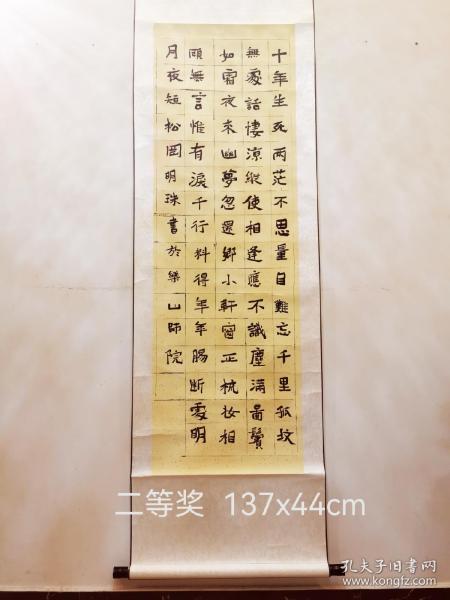 十年生死兩茫不思量自難忘千里孤坟
無處話悽涼縱使相逢應不識塵滿面鬢
如霜夜來幽夢忽還鄉小軒窗正梳妆相
頋無言惟有淚千行料得年年腸断處明
月夜短松岡明珠書於樂山師院
二等奖 137x44cm
孔夫子旧书网
www.kongfz.com